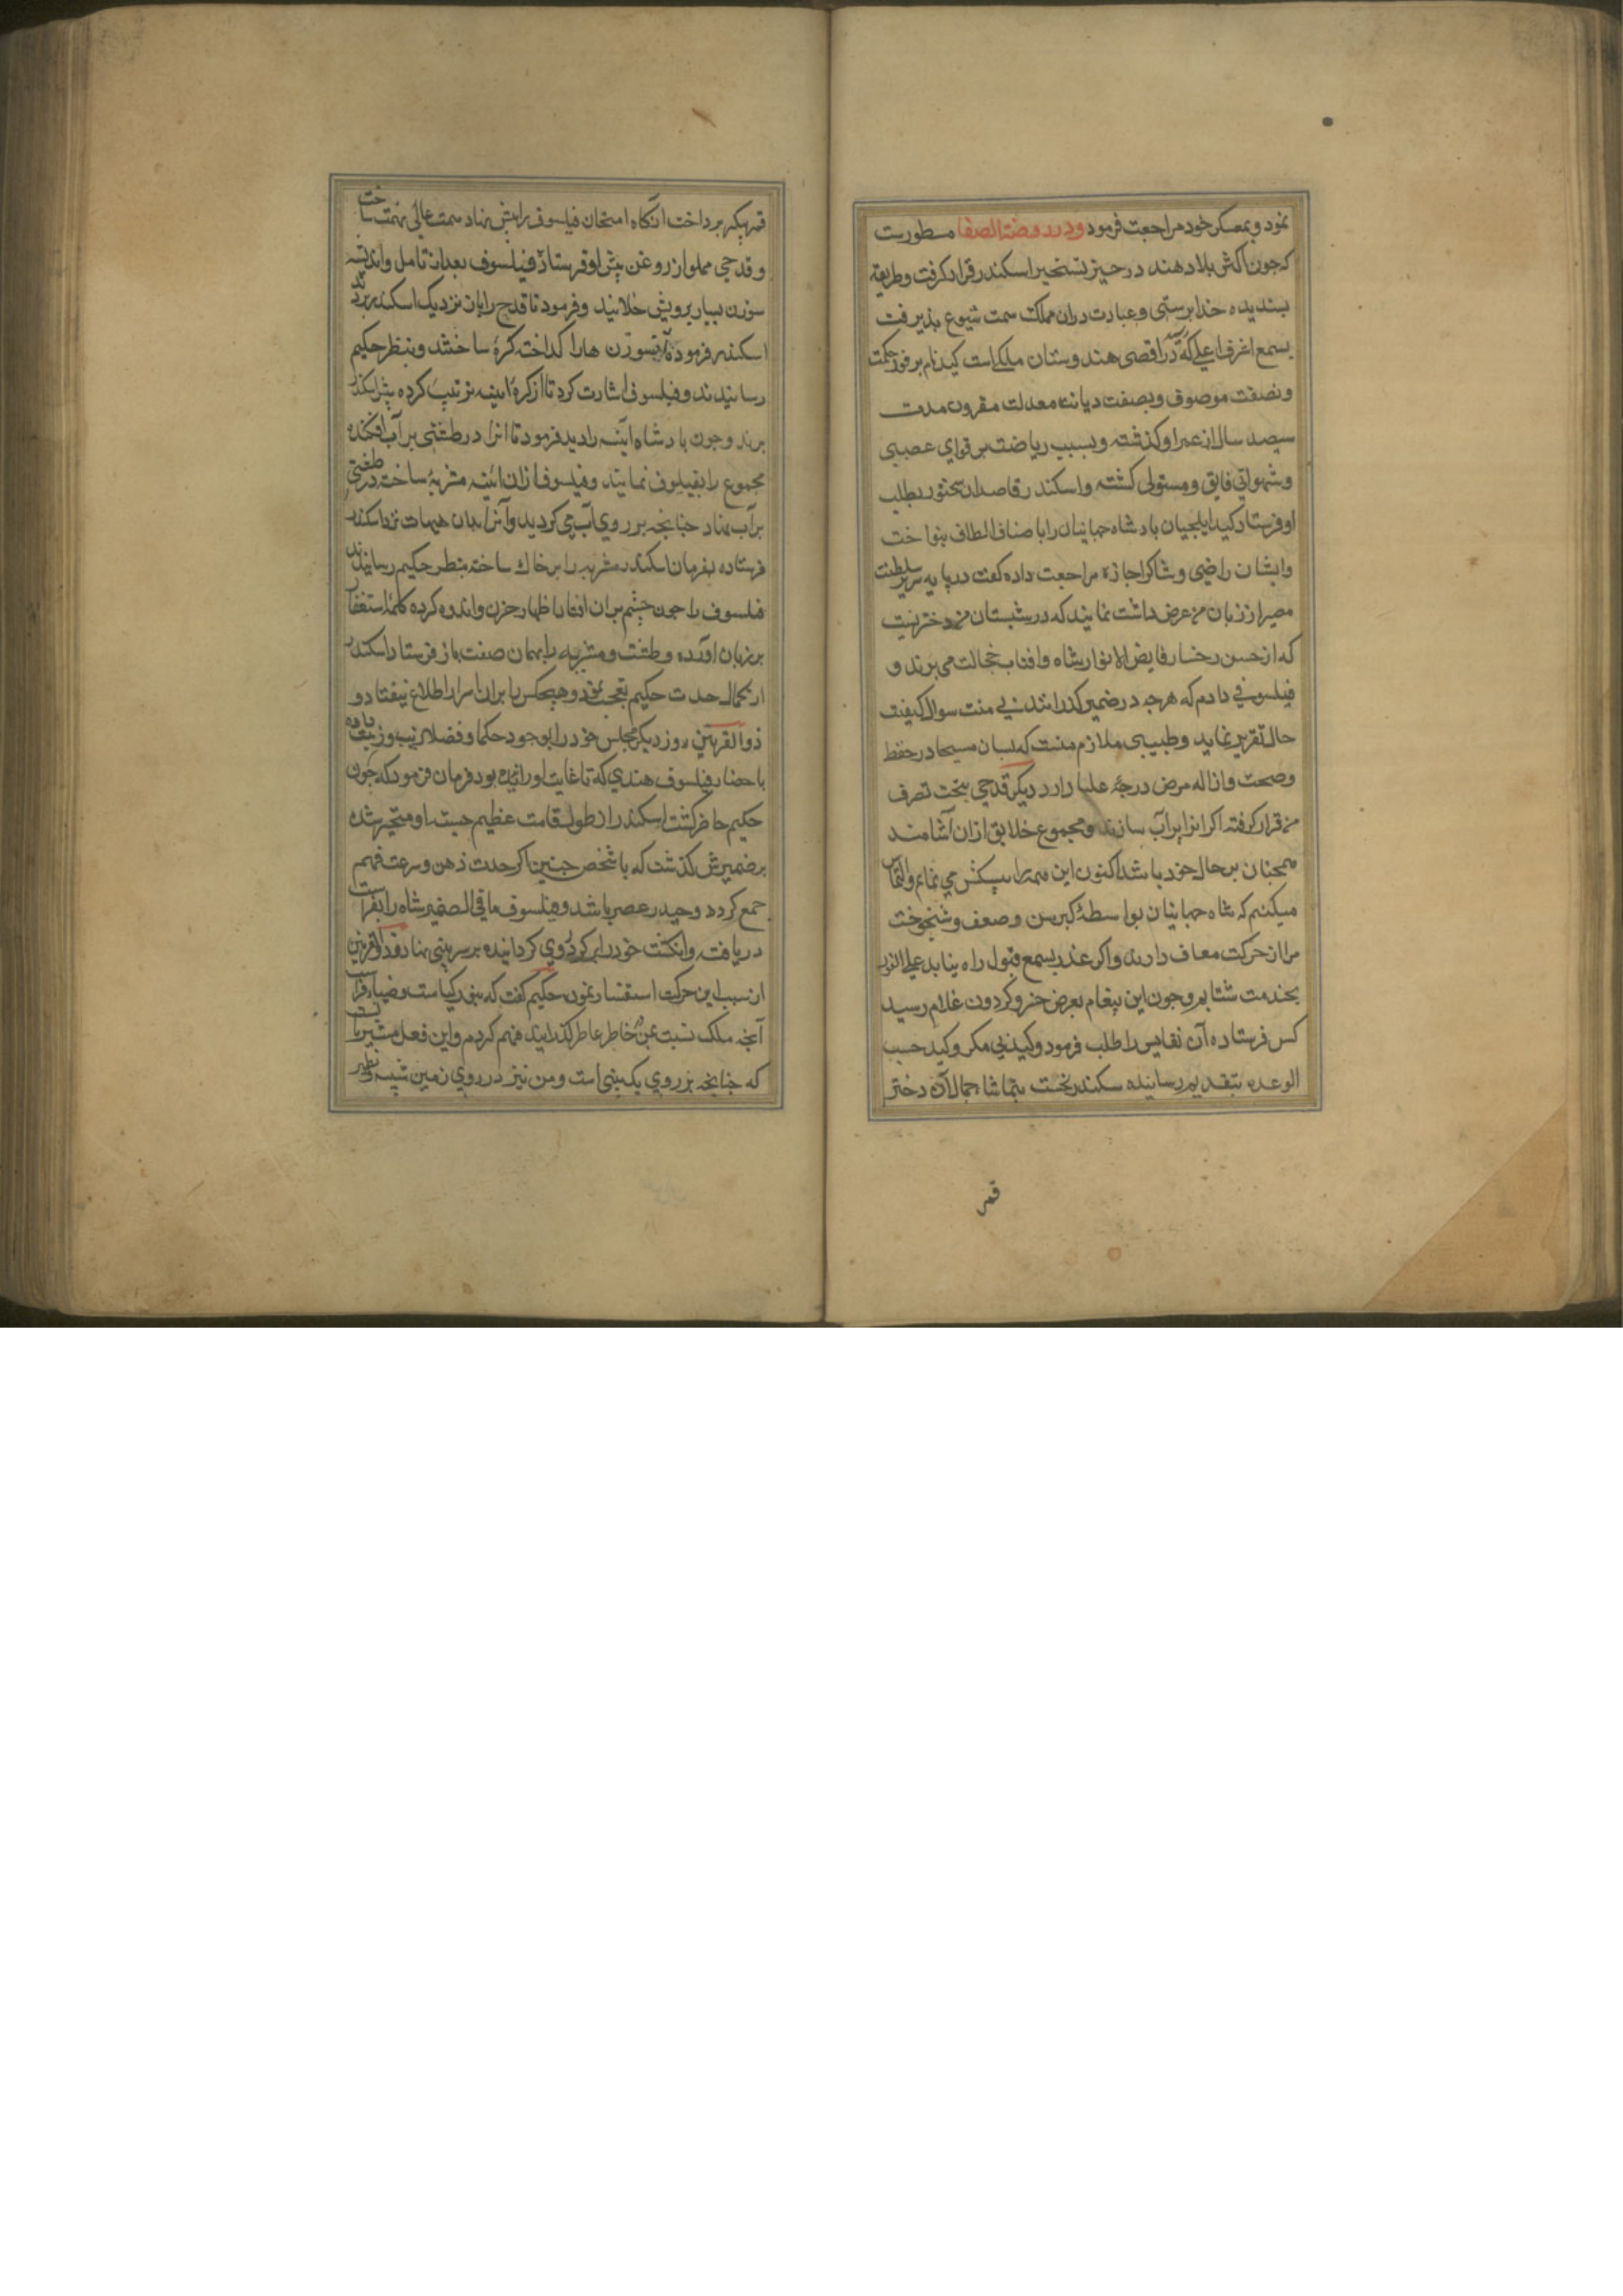 نمود و بمعسکر خود مراجعت فرمود و در روضة الصفا مسطورست
که جون اکثر بلاد هند در حیز تسخیر اسکندر قرار کرفت و طریقه
بسندیده خدابرستی و عبادت دران مملکت سمت شیوع بذیرفت
بسمع اشرف اعلی که در اقصی هندوستان ملکی است کید نام بر فور حکمت
و نصفت موصوف و بصفت دیانت معدلت مقرون مدت
سیصد سال از عمر او کذشته و بسبب ریاضت بر قوای عصبی
و شهواتی فایق و مستولی کشته و اسکندر قاصدان سخنور بطلب
او فرستاد کید ایلجیان بادشاه جهانیان را باصناف الطاف بنواخت
و ایشان راضی و شاکر اجازة مراجعت داده کفت در پایه سریر سلطنت
مصیر از زبان من عرض داشت نمایند که در شبستان من دختریست
که از حسن رخسار فایض الانوارش ماه و افتاب خجالت می برند و
فیلسوفی دارم که هرجه در ضمیر کذرانند بی منت سوال کیفیت
حال تقریر نماید و طبیبی ملازم منست که بسان مسیحا در حفظ
و صحت و ازاله مرض درجۀ علیا دارد دیکر قدحی بتخت تصرف
من قرار کرفته اکر انرا پرآب سازند و مجموع خلایق ازان آشامند
همجنان بر حال خود باشد اکنون این همه را پیشکش می نمایم و التماس
میکنم که شاه جهانیان بواسطۀ کبر سن و ضعف و شیخوخت
مرا از حرکت معاف دارند و اکر عذر بسمع قبول راه نیابد علی الفور
بخدمت شتابم و جون این پیغام بعرض خسرو کردون غلام رسید
کس فرستاده آن نفایس را طلب فرمود و کید بی مکر و کید حسب
الوعده بتقدیم رسانیده سکندر نخست بتماشا جمال آن دختر
قمر
قمر پیکر برداخت آنکاه امتحان فیلسوف را پیش نهاد همت عالی نهمت ساخت
و قدحی مملو از روغن پیش او فرستاد فیلسوف بعد از تامل و اندیشه
سوزن بسیار برویش خلانید و فرمود تا قدح را بان نزدیک اسکندر بردند
اسکندر فرمود تا سوزن ها را کداخته کرۀ ساختند و بنظر حکیم
رسانیدند و فیلسوف اشارت کرد تا از کره اینه ترتیب کرده پیش اسکندر
برند و جون بادشاه آینه را دید فرمود تا انرا در طشتی بر آب افکنده
مجموع را بفیلسوف نمایند و فیلسوف ازان اینه مشربۀ ساخت در طشتی
بر آب نهاد جنانجه بر روی آب می کردید و آنرا بدان هیات نزد اسکندر
فرستاده بفرمان اسکندر مشربه را بر خاک ساخته بنظر حکیم رسانیدند
فیلسوف را جون جشم بران افتاد اظهار حزن و اندوه کرده کلمۀ استغفار
بر زبان آورده و طشت و مشربه را بهمان صفت باز فرستاد اسکندر
از کمال حدت حکیم تعجب نمود و هیجکس را بران اسرار اطلاع نیفتاد و
ذوالقرنین روز دیکر مجلس خود را بوجود حکما و فضلا زیب و زینت داده
باحضار فیلسوف هندی که تا غایت او را ندیده بود فرمان فرمود که جون
حکیم حاضر کشت اسکندر از طول قامت عظیم جثه او متحیر شده
بر ضمیرش بکذشت که با شخص جنین اکر حدت ذهن و سرعت فهم
جمع کردد وحید عصر باشد و فیلسوف ما فی الضمیر شاه را بفراست
دریافت و انکشت خود را بر کرد روی کردانیده بر سر بینی نهاد و ذوالقرنین
از سبب این حرکت استفسار نمود حکیم کفت که بنور کیاست و ضیاء فراست
آنجه ملک نسبت بمن بخاطر عاطر کذرانید فهم کردم و این فعل مشیر باآنست
که جنانجه بر روی یک بینی است و من نیز در روی زمین شبیه و نظیر